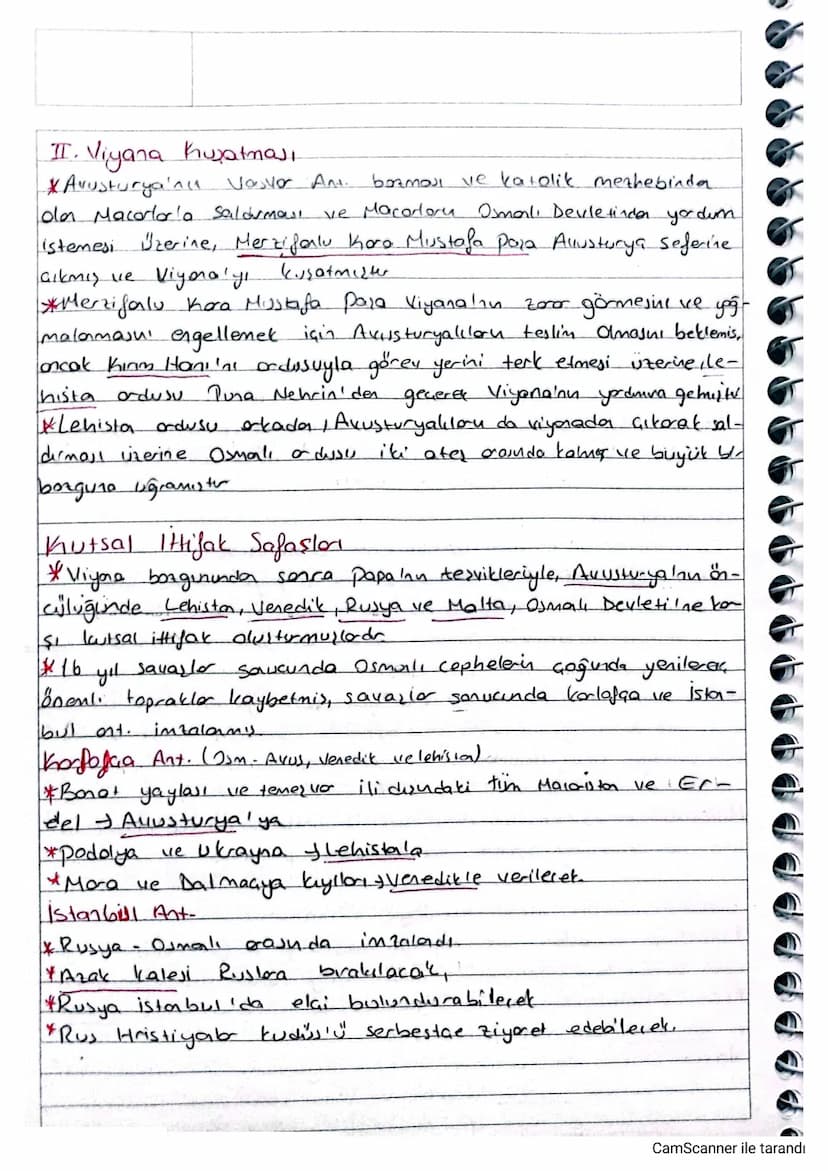 II. Viyana Kuşatması
* Avusturya'nın Vasvar Ant. bozması ve katolik mezhebinden
olan Macarlar'a saldırması ve Macarların Osmanlı Devletinden yardım
istemesi üzerine, Merzifonlu Kara Mustafa Paşa Avusturya seferine
çıkmış ve Viyana'yı kuşatmıştır
* Merzifonlu Kara Mustafa Paşa Viyana'nın zarar görmesini ve yağ-
malanmasını engellemek için Avusturyalıların teslim olmasını beklemiş,
ancak Kırım Hanı'nı ordusuyla görev yerini terk etmesi üzerine, le-
hista ordusu Tuna Nehrin'den geçerek Viyana'nın yardımına gelmiştir
* Lehista ordusu arkadan, Avusturyalıların da viyanadan çıkarak sal-
dırması üzerine Osmalı ordusu iki ateş arasında kalmış ve büyük bir
bozguna uğramıştır
Kutsal İttifak Safaşları
* Viyana bozgunundan sonra Papa'nın teşvikleriyle, Avusturya'nın ön-
cülüğünde Lehistan, Venedik, Rusya ve Malta, Osmalı Devleti'ne kar-
şı kutsal ittifak oluşturmuşlardır
* 16 yıl savaşlar sonucunda Osmanlı cephelerin çoğunda yenilerek,
önemli topraklar kaybetmiş, savaşlar sonucunda karlofça ve İstan-
bul ant. imzalanmış
Karlofça Ant. (Osm - Avus, Venedik ve lehistan)
* Banat yaylası ve temeşvar ili dışındaki tüm Macaristan ve Er-
del → Avusturya'ya
* Podolya ve Ukrayna → Lehistala
* Mora ve Dalmaçya kıyıları → Venedikle verilecek.
İstanbul Ant-
* Rusya - Osmalı arasında imzalandı.
* Azak kalesi Ruslara bırakılacak,
* Rusya istanbul'da elçi bulundurabilecek
* Rus Hristiyalar kudüs'ü serbestçe ziyaret edebilecek.
CamScanner ile tarandı